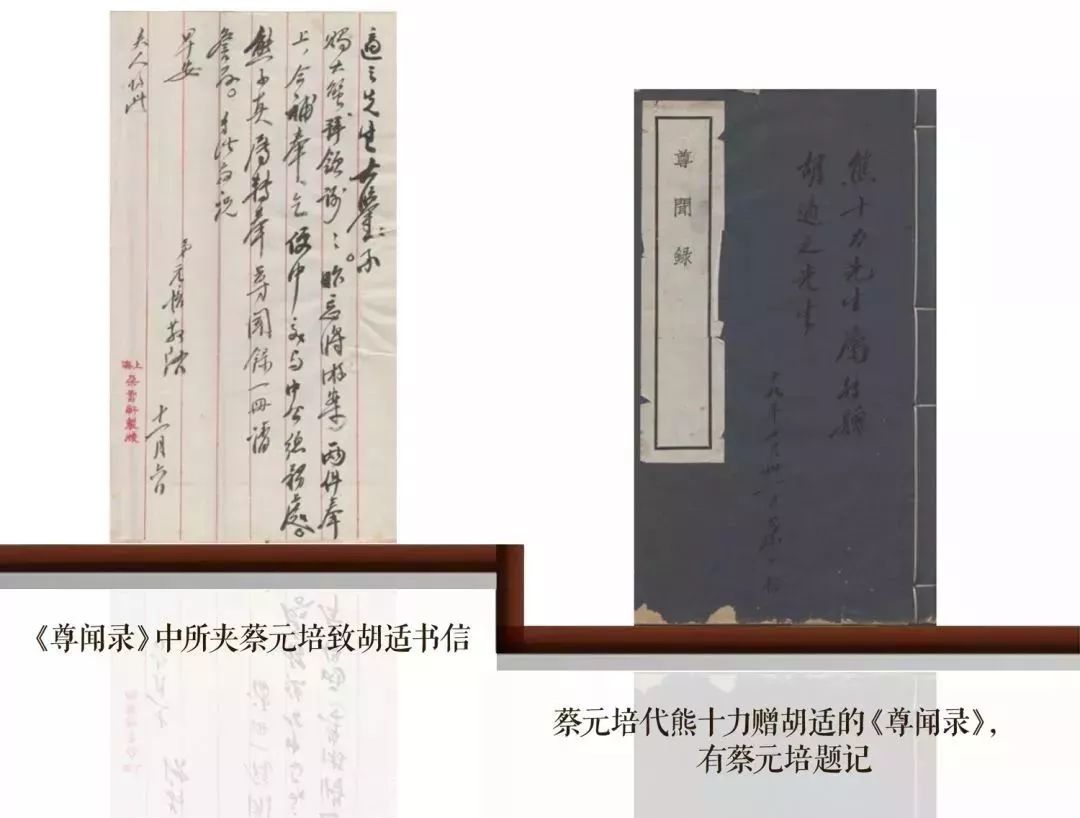 適之先生大鑒：承
賜大蟹拜領謝〻。昨忘將兩件奉
上，今補奉，乞便中交与中公總務處。
熊子真屬轉奉尊聞錄一冊請
詧存。專此祝
早安
夫人均此
弟元培敬啟
十一月六日
上海
朵雲軒製牋
尊聞錄
熊十力先生屬轉贈
胡適之先生
十九年十月卅一日蔡元培
《尊闻录》中所夹蔡元培致胡适书信
蔡元培代熊十力赠胡适的《尊闻录》,
有蔡元培题记